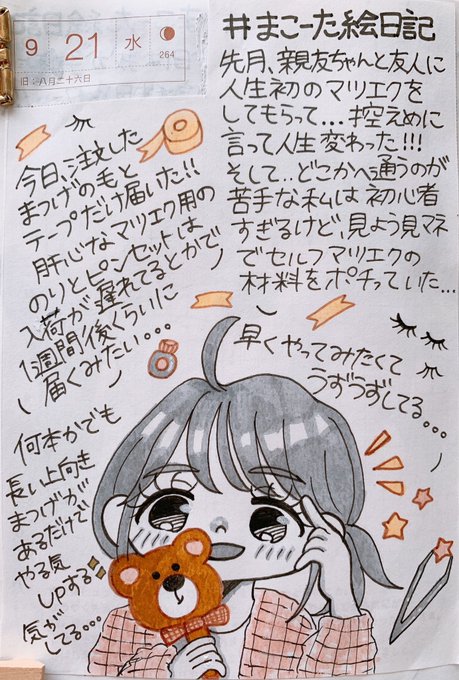 9 21 水 264
旧:八月二十六日
#まこーた絵日記
先月、親友ちゃんと友人に
人生初のマツエクを
してもらって...控えめに
言って人生変わった!!!
そして..どこかへ通うのが
苦手な私は初心者
すぎるけど、見よう見マネ
でセルフマツエクの
材料をポチっていた...
今日、注文した
まつげの毛と
テープだけ届いた!!
肝心なマツエク用の
のりとピンセットは
入荷が遅れてるとかで
1週間後くらいに
届くみたい...
早くやってみたくて
うずうずしてる...
何本かでも
長い上向き
まつげが
あるだけで
やる気
UPする
気が
してる...